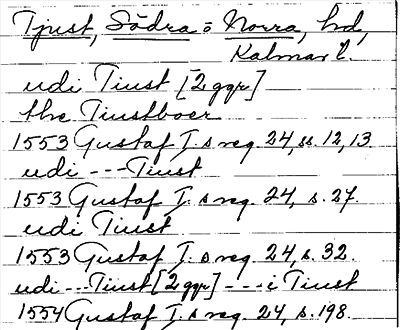 Tjust, Södra o Norra, hd,
Kalmar l.
udi Tiust [2 ggr]
the Tiustboer
1553 Gustaf I. s reg. 24, ss. 12, 13
udi --- Tiust
1553 Gustaf I. s reg. 24, s. 27.
udi Tiust
1553 Gustaf I. s reg. 24, s. 32.
udi --- Tiust [2 ggr] --- i Tiust
1554 Gustaf I. s reg. 24, s. 198.